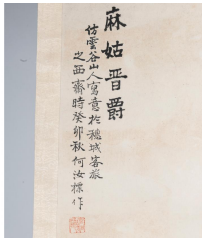 麻姑晋爵
仿雲谷山人寫意於穗城客旅
之西齋時癸卯秋何汝標作